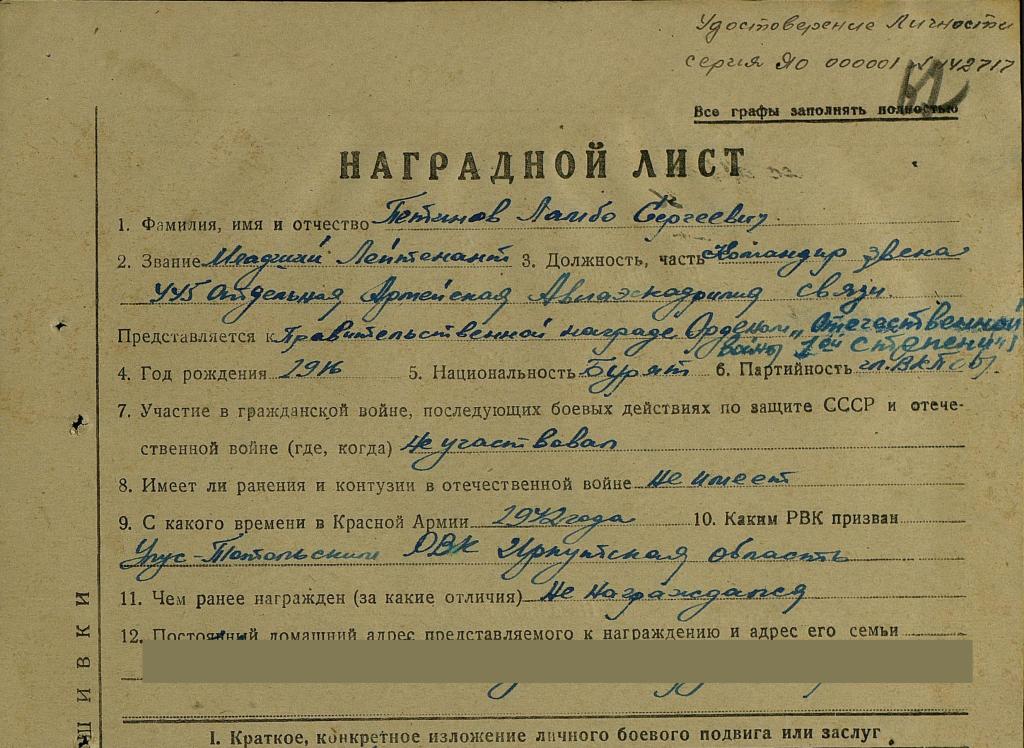 Удостоверение Личности
серия ЯО 000001 № 142717
Все графы заполнять полностью
НАГРАДНОЙ ЛИСТ
1. Фамилия, имя и отчество Петинов Ламбо Сергеевич
2. Звание Младший Лейтенант 3. Должность, часть Командир звена
445 Отдельная Армейская Авиаэскадрилия связи
Представляется к Правительственной награде Орденом „Отечественной
войны 2ой степени"
4. Год рождения 1916 5. Национальность Бурят 6. Партийность чл. ВКП(б)
7. Участие в гражданской войне, последующих боевых действиях по защите СССР и отече-
ственной войне (где, когда) Не участвовал
8. Имеет ли ранения и контузии в отечественной войне Не имеет
9. С какого времени в Красной Армии 1942 года 10. Каким РВК призван
ОВК Иркутская область
11. Чем ранее награжден (за какие отличия) Не Награждался
12. Постоянный домашний адрес представляемого к награждению и адрес его семьи
I. Краткое, конкретное изложение личного боевого подвига или заслуг
ШИВКИ